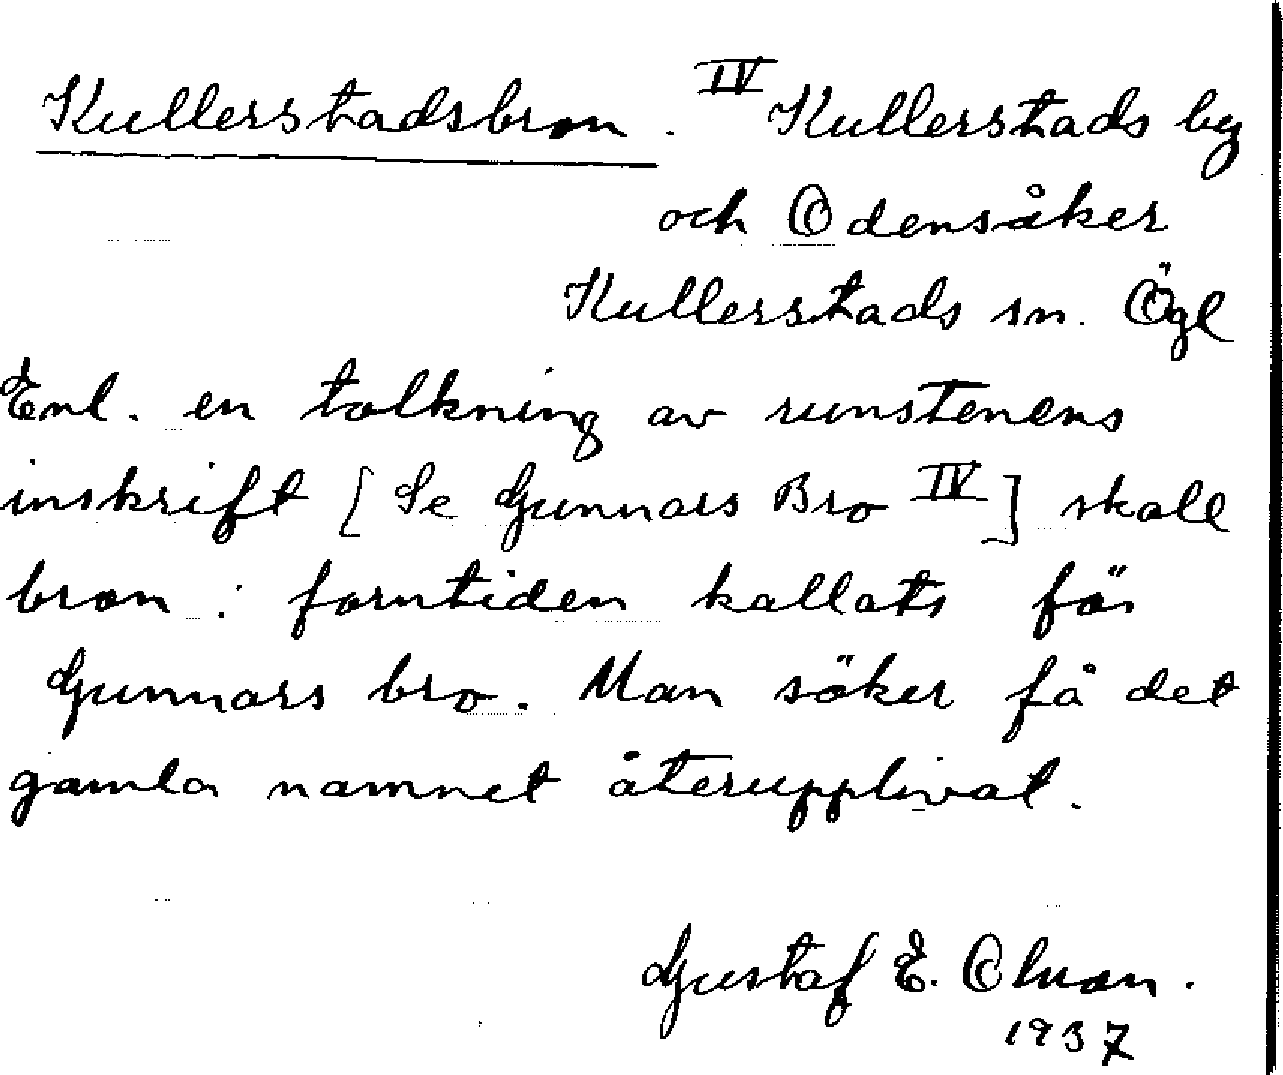 Kullerstadsbron. IV Kullerstads by
och Odensåker
Kullerstads sn. Ögl
Enl. en tolkning av runstenens
inskrift [Se Gunnars Bro IV] skall
bron i forntiden kallats för
Gunnars bro. Man söker få det
gamla namnet återupplivat.
Gustaf E. Olsson.
1937